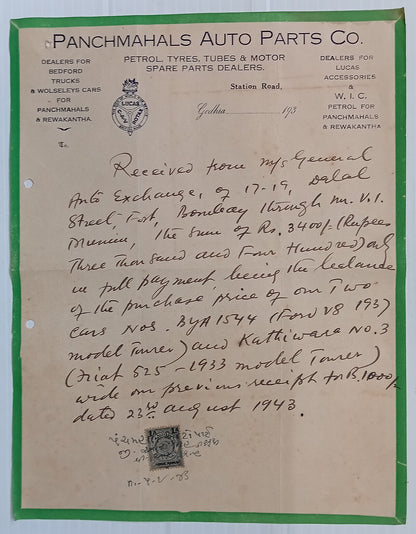 PANCHMAHALS AUTO PARTS CO.
DEALERS FOR
BEDFORD
TRUCKS
& WOLSELEYS CARS
FOR
PANCHMAHALS
& REWAKANTHA
PETROL, TYRES, TUBES & MOTOR
SPARE PARTS DEALERS.
LUCAS
Station Road,
Godhra 193
DEALERS FOR
LUCAS
ACCESSORIES
&
W. I. C.
PETROL FOR
PANCHMAHALS
& REWAKANTHA
To,
Received from M/s General
Auto Exchange, of 17-19, Dalal
Street, Fort, Bombay through Mr. V. I.
the sum of Rs. 3400/- (Rupees
Three thousand and Four Hundred) only
in full payment being the balance
of the purchase price of our Two
cars Nos. BYA 1544 (Ford V8 193
model Tourer) and Kathiwara No. 3
(Fiat 525-1933 model Tourer)
vide our previous receipt for Rs. 1000/-
dated 23rd August 1943.